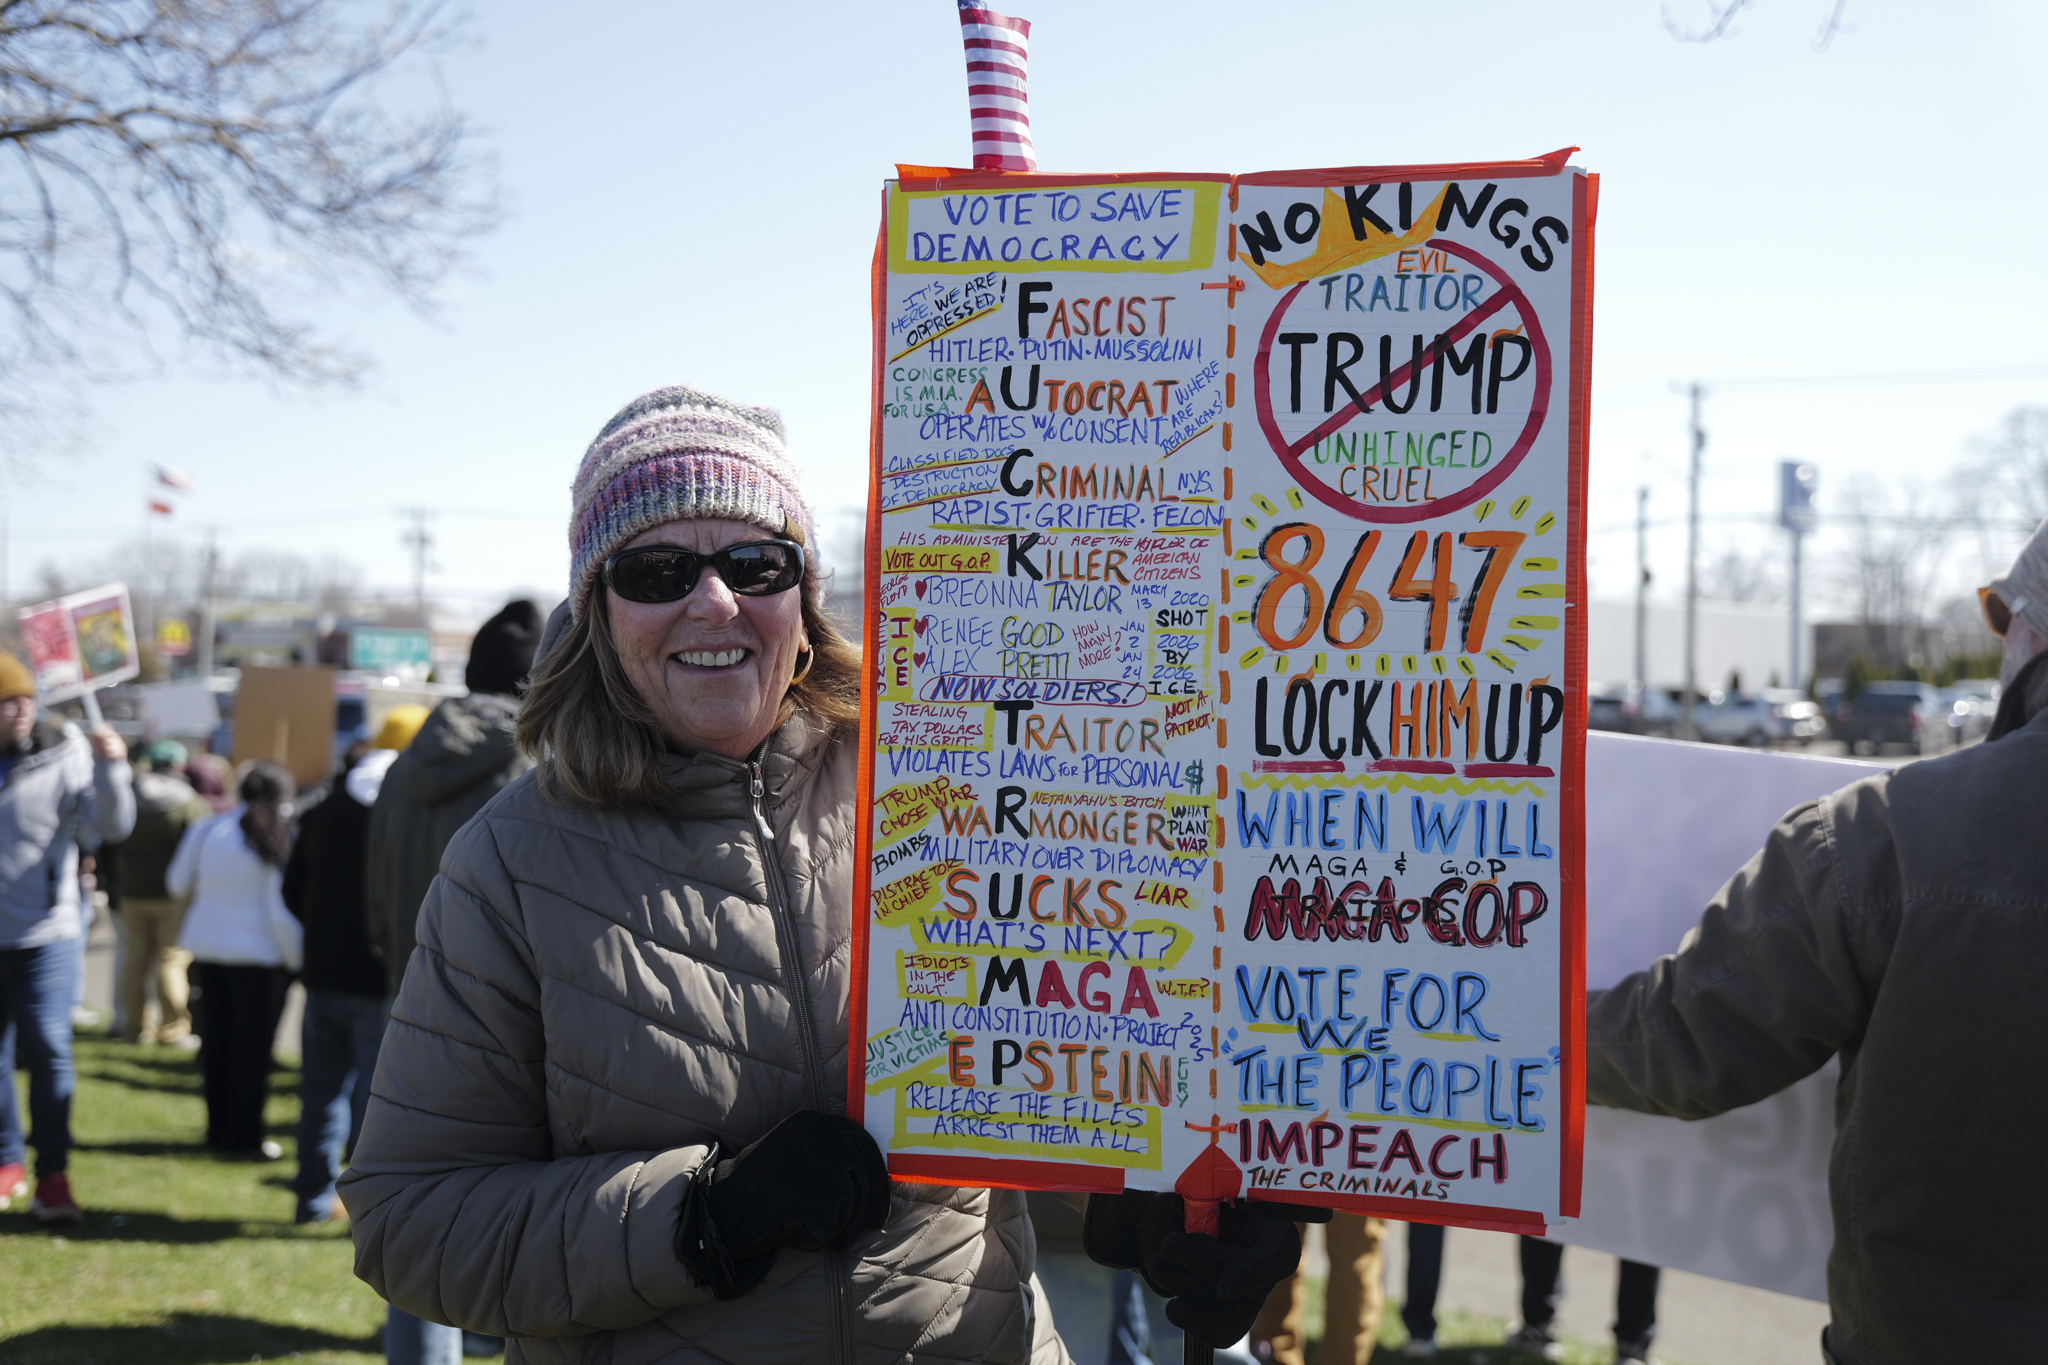 VOTE TO SAVE
DEMOCRACY
IT'S
HERE. WE ARE
OPPRESSED!
FASCIST
HITLER · PUTIN · MUSSOLINI
CONGRESS
IS M.I.A.
FOR U.S.A.
AUTOCRAT
WHERE
ARE
REPUBLICANS?
OPERATES W/O CONSENT
-CLASSIFIED DOCS
-DESTRUCTION
OF DEMOCRACY
CRIMINAL
N.Y.S.
RAPIST · GRIFTER · FELON
HIS ADMINISTRATION ARE THE KILLER OF
AMERICAN
CITIZENS
VOTE OUT G.O.P.
KILLER
GEORGE
FLOYD
BREONNA TAYLOR
MARCH
13 2020
ICE
RENEE GOOD
ALEX PRETTI
HOW
MANY
MORE?
JAN
2
2026
JAN
24
2026
SHOT
BY
I.C.E.
NOW SOLDIERS!
STEALING
TAX DOLLARS
FOR HIS GRIFT.
TRAITOR
NOT A
PATRIOT!
VIOLATES LAWS FOR PERSONAL $
TRUMP
CHOSE WAR
NETANYAHU'S BITCH.
WARMONGER
WHAT
PLAN?
WAR
BOMBS
MILITARY OVER DIPLOMACY
DISTRACTOR
IN CHIEF
SUCKS
LIAR
WHAT'S NEXT?
IDIOTS
IN THE
CULT.
MAGA
W.T.F?
ANTI CONSTITUTION · PROJECT 2025
JUSTICE
FOR VICTIMS
EPSTEIN
FURY
RELEASE THE FILES
ARREST THEM ALL
NO KINGS
EVIL
TRAITOR
TRUMP
UNHINGED
CRUEL
8647
LOCK HIM UP
WHEN WILL
MAGA & G.O.P
MAGA GOP
TRAITORS
VOTE FOR
WE
"THE PEOPLE"
IMPEACH
THE CRIMINALS